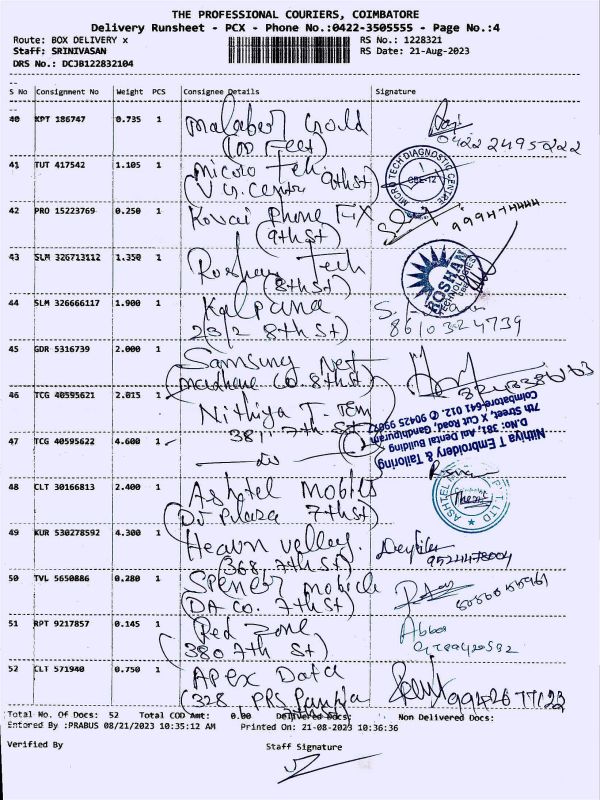 THE PROFESSIONAL COURIERS, COIMBATORE
Delivery Runsheet - PCX - Phone No.:0422-3505555 - Page No.:4
Route: BOX DELIVERY x RS No.: 1228321
Staff: SRINIVASAN RS Date: 21-Aug-2023
DRS No.: DCJB122832104
S No Consignment No Weight PCS Consignee Details Signature
40 KPT 186747 0.735 1 Malaber Gold
(100 Feet)
0422 2495222
41 TUT 417542 1.105 1 Micro Tech
9th st)
MICRO TECH DIAGNOSTIC CENTRE
CBE-12
42 PRO 15223769 0.250 1 Kovai Phone FIX
(9th st)
43 SLM 326713112 1.350 1 Roshan Tech
(8th st)
ROSHAN TECHNOLOGIES
44 SLM 326666117 1.900 1 Kalpana
23/2 8th St)
8610324739
45 GDR 5316739 2.000 1 Samsung Net
co. 8th st)
46 TCG 40595621 2.015 1 Nithiya T. Tem
381, 7th St)
47 TCG 40595622 4.600 1
Nithiya T Embroidery & Tailoring
D.No: 381, Ani Dental Building
7th Street, X Cut Road, Gandhipuram
Coimbatore-641 012. ✆ 90425 99077
48 CLT 30166813 2.400 1 Ashtel Mobiles
(DJ Plaza 7th st)
49 KUR 530278592 4.300 1 Heavn valley.
(368, 7th st)
9524478004
50 TVL 5650886 0.280 1 Spencer mobile
(DA co. 7th st)
51 RPT 9217857 0.145 1 Red Zone
(380 7th St)
Abbas
52 CLT 571940 0.750 1 Apex Data
(328, PRS
7th st)
Total No. Of Docs: 52 Total COD Amt: 0.00 Delivered Docs: Non Delivered Docs:
Entered By :PRABUS 08/21/2023 10:35:12 AM Printed On: 21-08-2023 10:36:36
Verified By Staff Signature